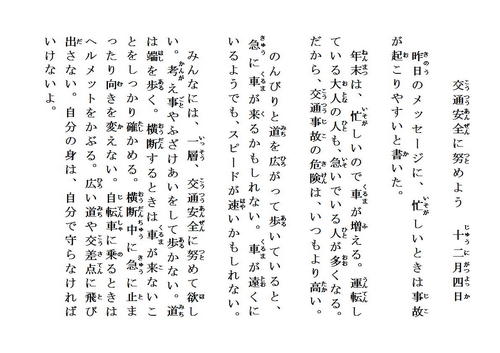 交通安全に努めよう　十二月四日
昨日のメッセージに、忙しいときは事故
が起こりやすいと書いた。
年末は、忙しいので車が増える。運転し
ている大人の人も、急いでいる人が多くなる。
だから、交通事故の危険は、いつもより高い。
のんびりと道を広がって歩いていると、
急に車が来るかもしれない。車が遠くに
いるようでも、スピードが速いかもしれない。
みんなには、一層、交通安全に努めて欲し
い。考え事やふざけあいをして歩かない。道
は端を歩く。横断するときは車が来ないこ
とをしっかり確かめる。横断中に急に止ま
ったり向きを変えない。自転車に乗るときは
ヘルメットをかぶる。広い道や交差点に飛び
出さない。自分の身は、自分で守らなければ
いけないよ。